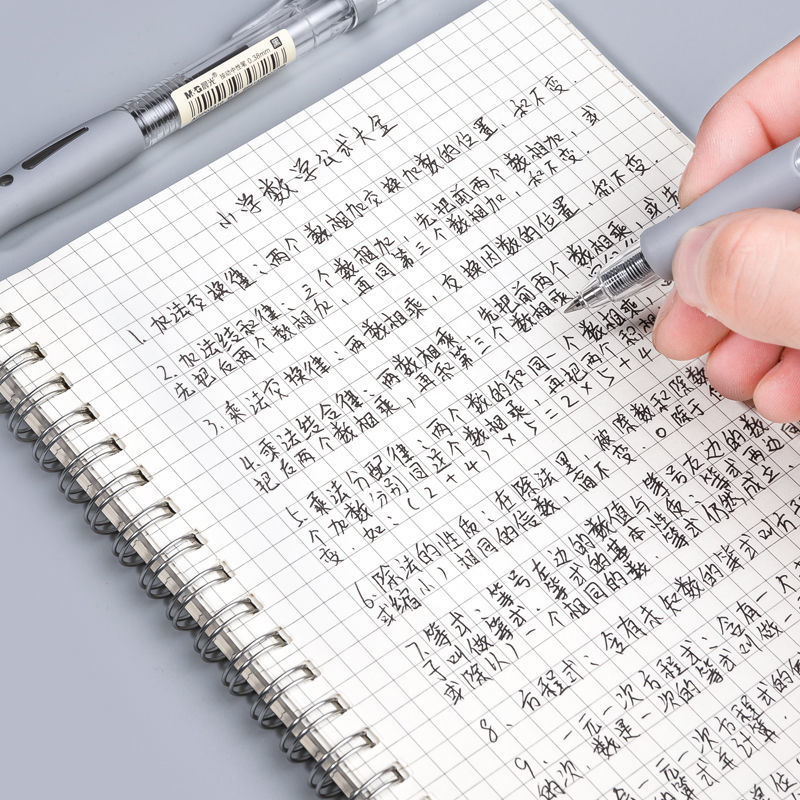 M&G晨光® 按动中性笔 0.38mm
小学数学公式大全
1. 加法交换律：两个数相加交换加数的位置，和不变.
2. 加法结和律：三个数相加，先把前两个数相加，或
先把后两个数相加，再同第三个数相加，和不变.
3. 乘法交换律：两数相乘，交换因数的位置，积不变.
4. 乘法结合律：两数相乘，先把前两个数相乘，或先
把后两个数相乘，再和第三个数相乘，
5. 乘法分配律：两个数的和同一个数相乘，
个加数分别同这个数相乘，再把两个积相
变. 如：(2+4)×5=2×5+4
6. 除法的性质：在除法里，被除数和除数
或缩小）相同的倍数，商不变. 0除于
7. 等式：等号左边的数值与等号右边的数
子叫做等式. 等式的基本性质：等式两边
或除以）一个相同的数，等式仍然成立.
8、方程式：含有未知数的等式叫方
9、一元一次方程式：含有一个
的次，数是一次的等式叫做一
一元一次方程式的
的等式并计算.
单位